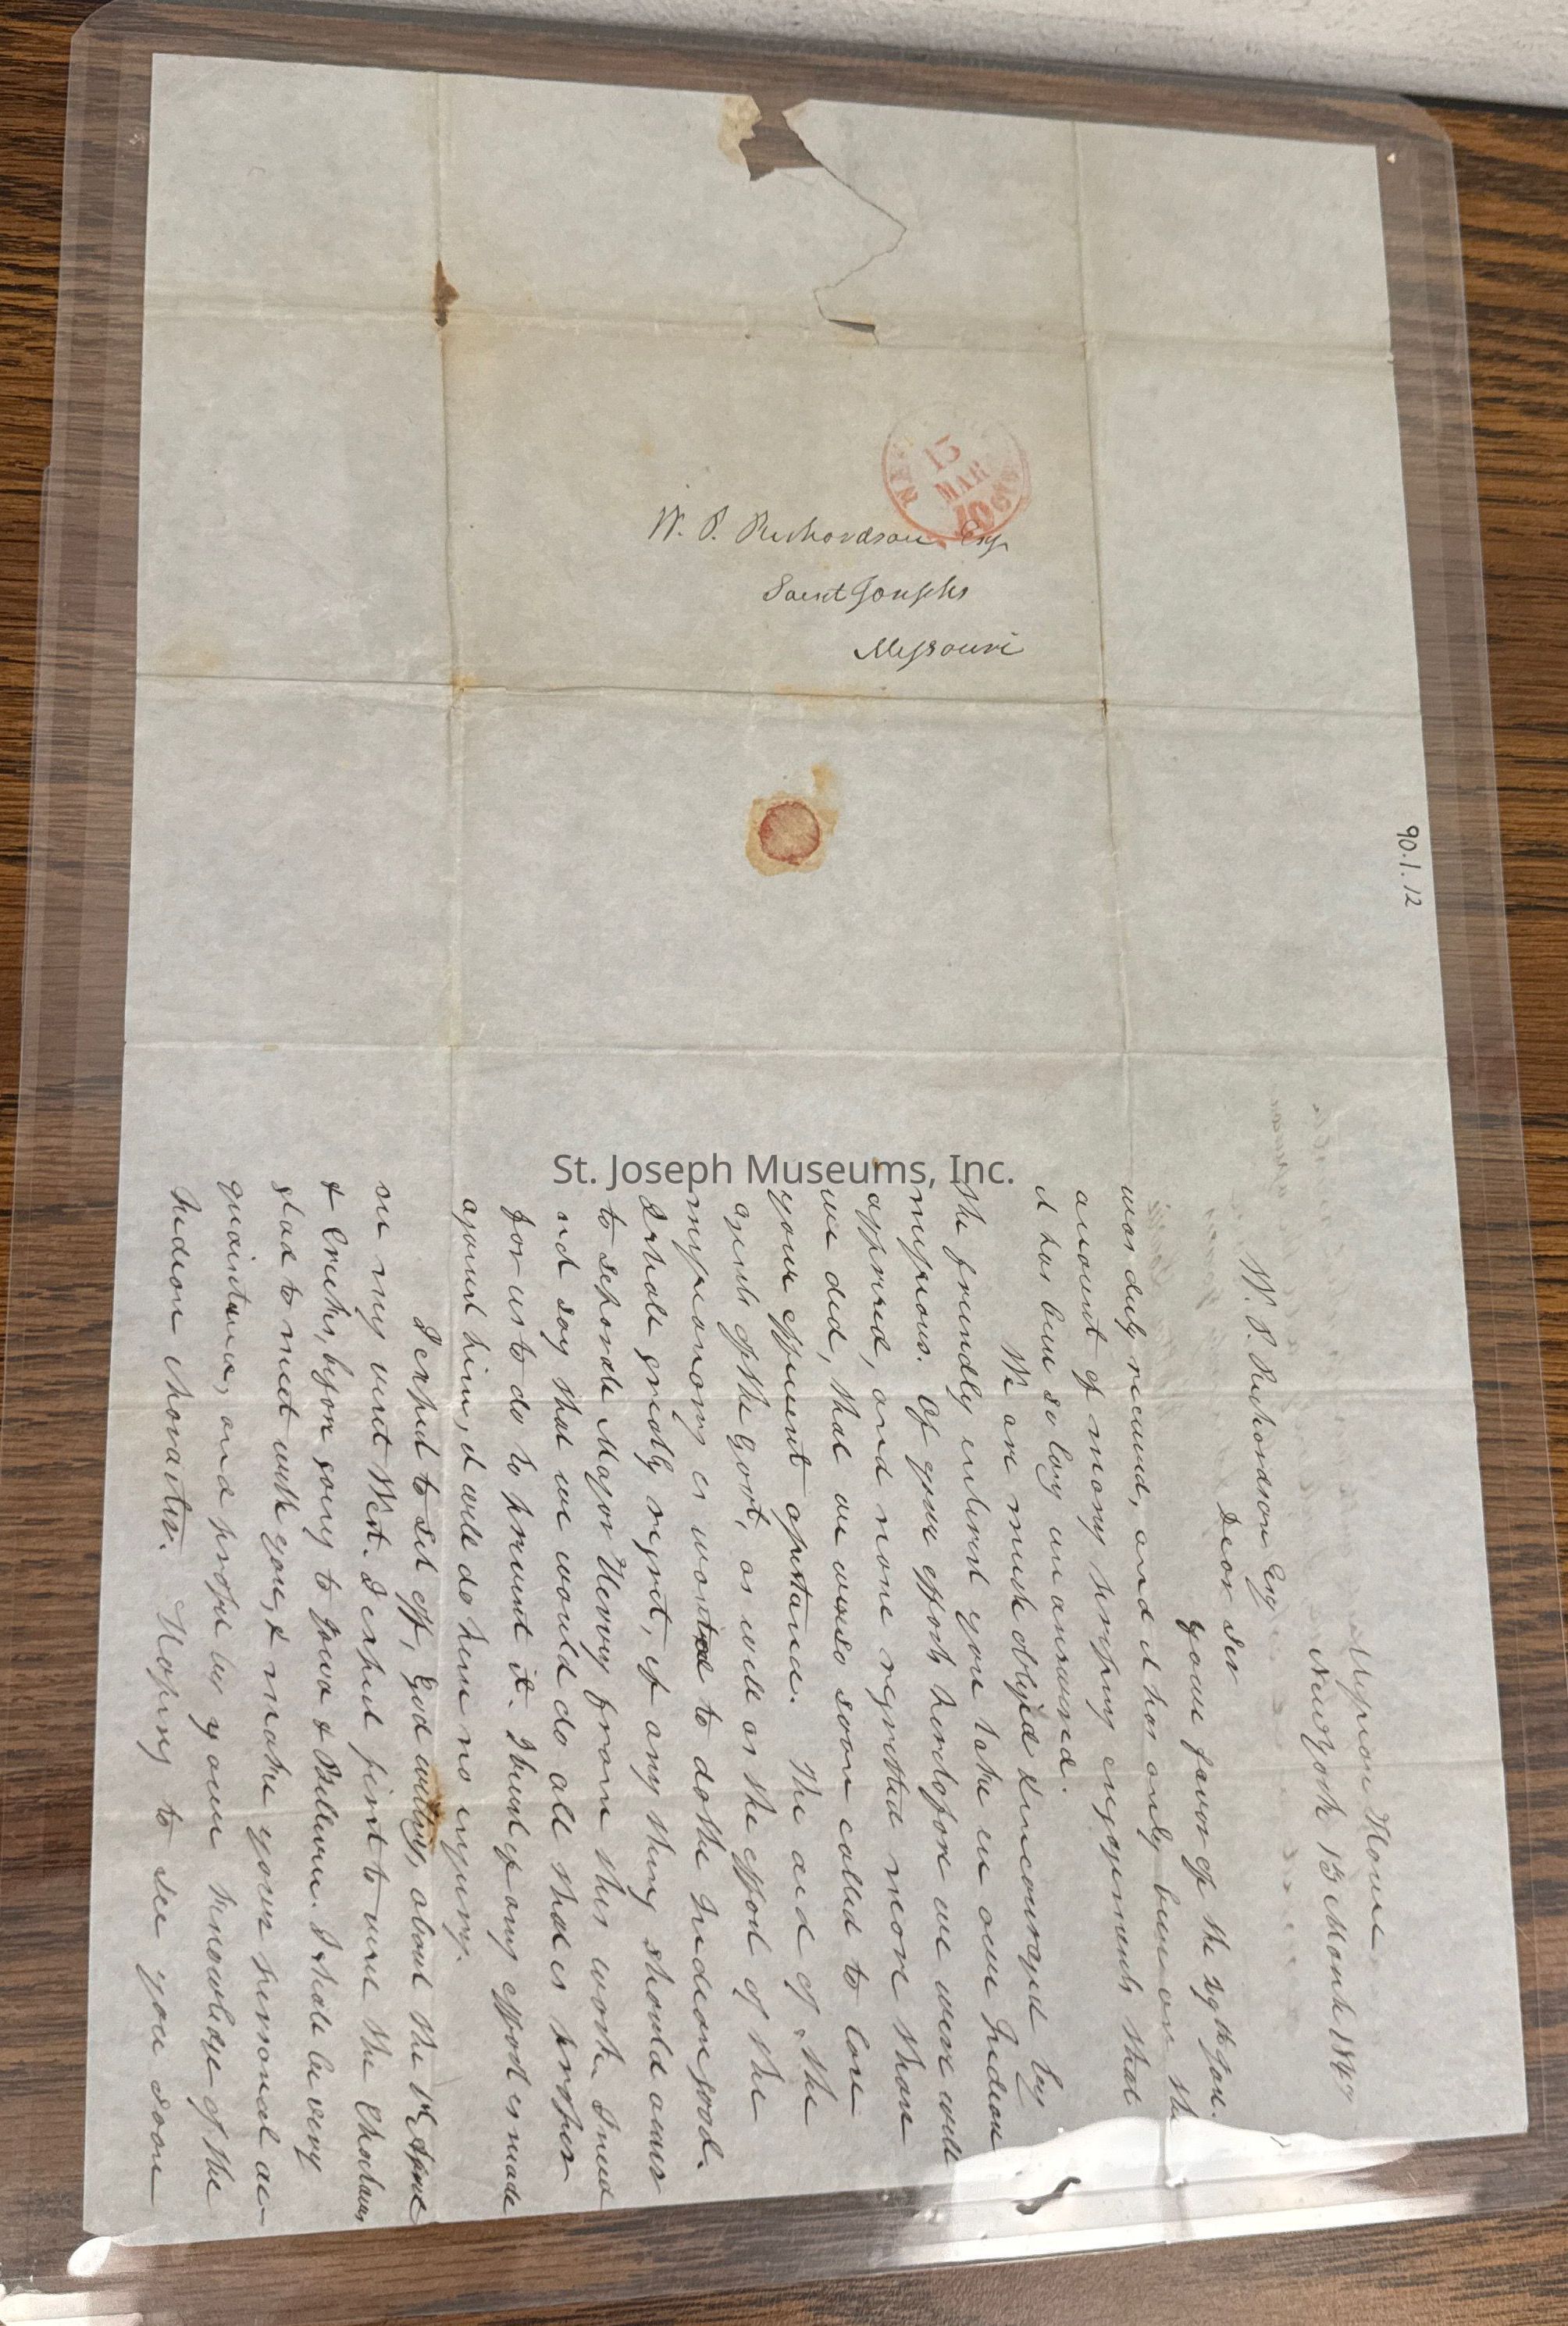 W. P. Richardson Esq
Saint Josephs
Missouri
NEW
13
MAR
10 cts
90.1.12
St. Joseph Museums, Inc.
Mission House
New York 13 March 1847
W. P. Richardson Esq
Dear Sir
Your favor of the
was duly received, and it has only been on the
amount of many pressing engagements that
it has been so long unanswered.
We are much obliged & encouraged by
the friendly interest you take in our Indian
missions. Of your efforts heretofore we were well
apprised, and none regretted more than
we did, that we were so soon called to lose
your efficient assistance. The aid of the
agents of the Govt, as well as the effort of the
missionary is wanted to do the Indian good.
I shall greatly regret, if any thing should occur
to separate Major Harvey from this work. I need
not say that we would do all that is proper
for us to do to prevent it. I trust if any effort is made
against him, it will do him no injury.
I expect to set off, God willing, about the 1st of April
on my visit West. I expect first to visit the Choctaws
& Creeks, before going to Iowa & Bellevue. I shall be very
glad to meet with you, & make your personal ac-
quaintance, and profit by your knowledge of the
Indian character. Hoping to see you soon